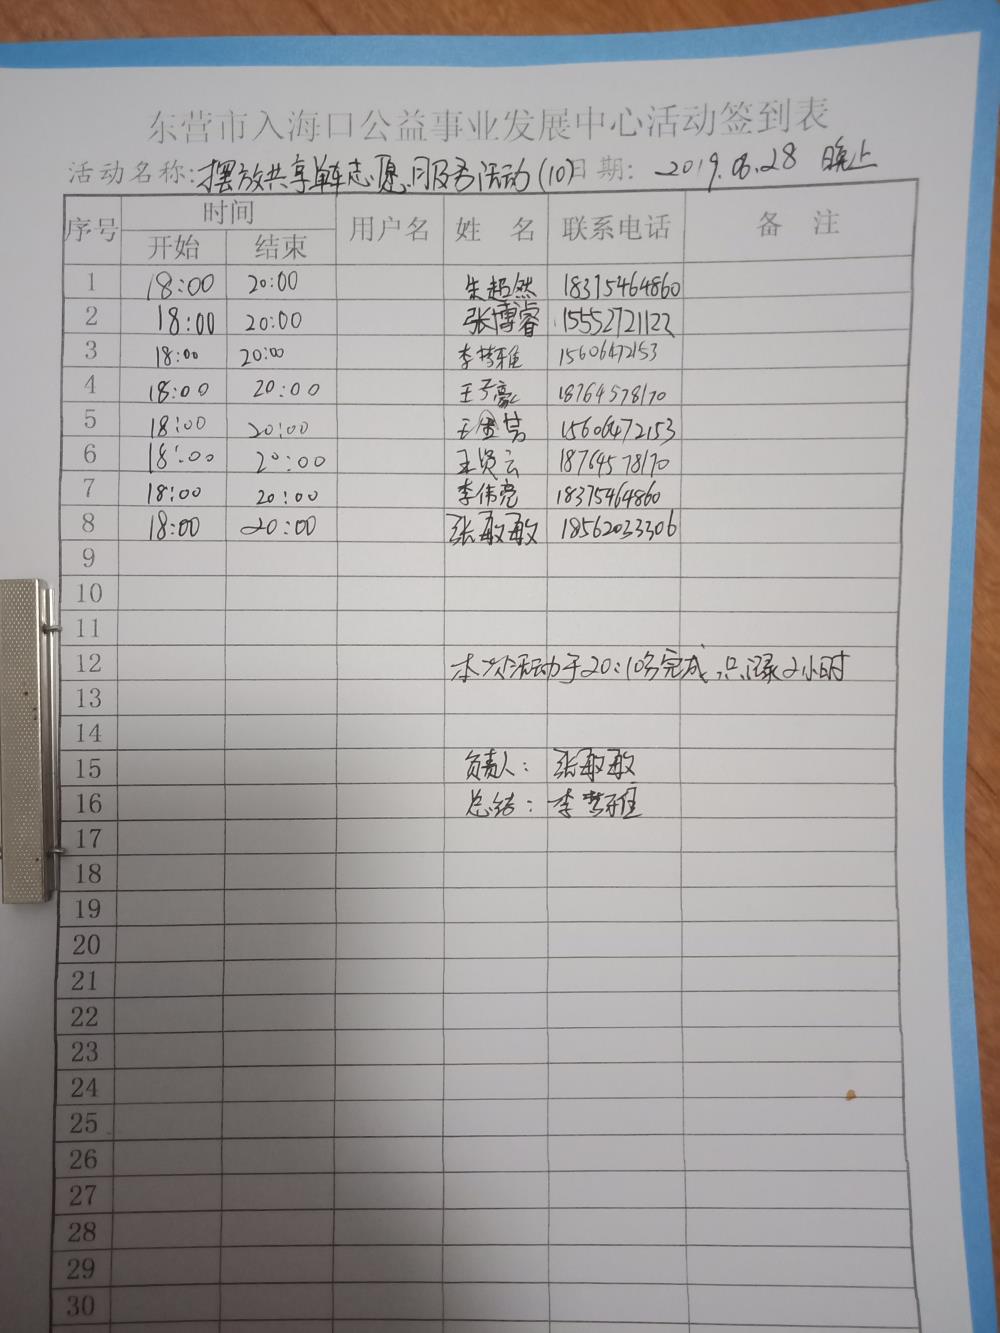 东营市入海口公益事业发展中心活动签到表
活动名称:摆放共享单车志愿服务活动(10)日期: 2019.08.28 晚上
序号 时间 用户名 姓 名 联系电话 备 注
开始 结束
1 18:00 20:00 朱超然 18375464860
2 18:00 20:00 张博睿 15552721122
3 18:00 20:00 李梦雅 15606472153
4 18:00 20:00 王子豪 18764578170
5 18:00 20:00 王 15606472153
6 18:00 20:00 王贤云 18764578170
7 18:00 20:00 李伟亮 18375464860
8 18:00 20:00 张敏敏 18562033306
9
10
11
12 本次活动于20:10分完成,只记录2小时
13
14
15 负责人: 张敏敏
16 总结: 李梦雅
17
18
19
20
21
22
23
24
25
26
27
28
29
30